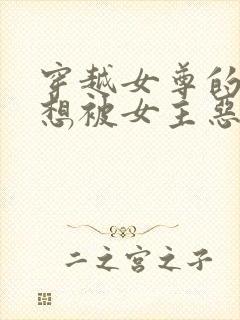 穿越女尊的
想被女主惡
二之宮之子